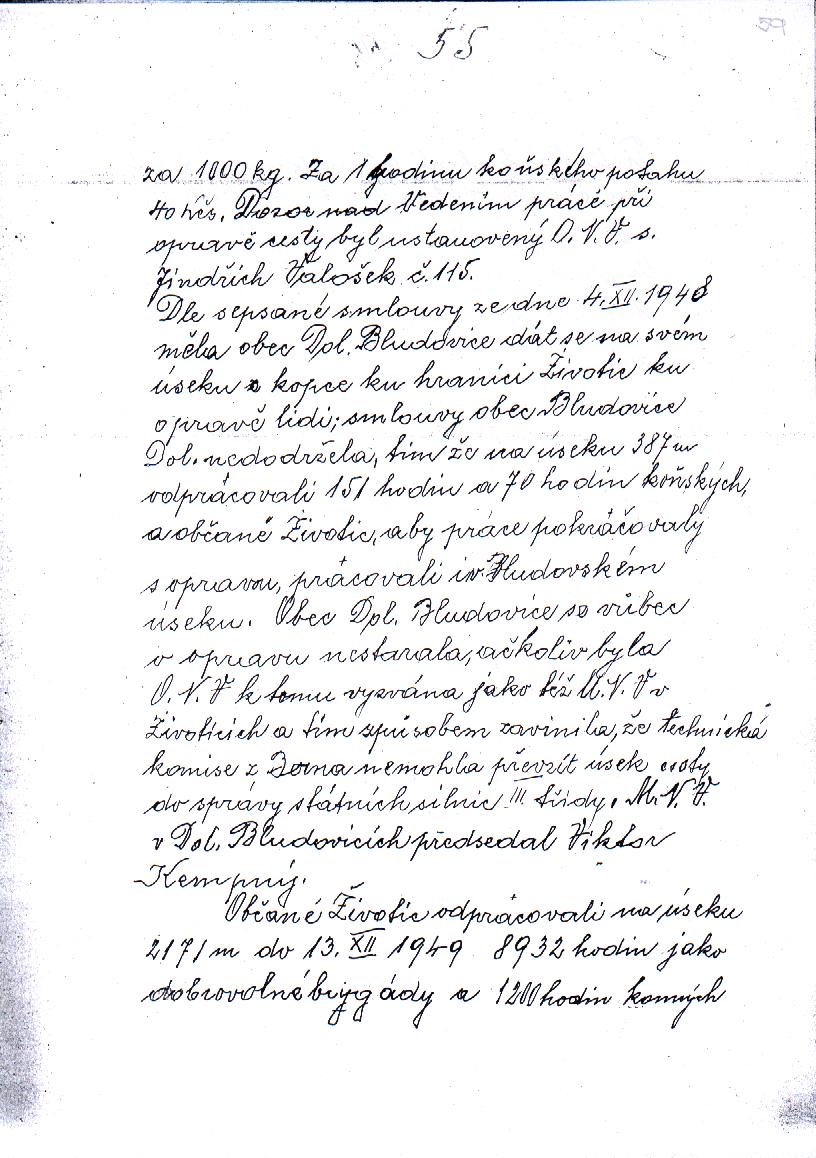 59
55
za 1000 kg. Za 1 hodinu koňského potahu
40 Kčs. Dozor nad Vedením prácé při
opravě cesty byl ustanovený O.N.V. s.
Jindřich Valošek č. 115.
Dle sepsané smlouvy ze dne 4. XII. 1948
měla obec Dol. Bludovice dát se na svém
úseku z kopce ku hranici Životic ku
opravě lidi; smlouvy obec Bludovice
Dol. nedodržela, tím že na úseku 387 m
odprácovali 151 hodin a 70 hodin koňských,
a občané Životic, aby práce pokráčovaly
s opravou, prácovali i v Bludovském
úseku. Obec Dol. Bludovice se vůbec
o opravu nestarala, ačkoliv byla
O.N.V k tomu vyzvána jako též M.N.V v
Životicích a tím způsobem zavinila, že technická
komise z Brna nemohla převzít úsek cesty
do správy státních silnic III třídy. M.N.V.
v Dol. Bludovicích předsedal Viktor
Kempný.
Občané Životic odprácovali na úseku
2171 m do 13. XII 1949 8932 hodin jako
dobrovolné brygády a 1200 hodin konných